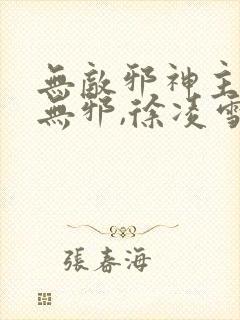 無敵邪神主
無邪,徐凌雪
張春海